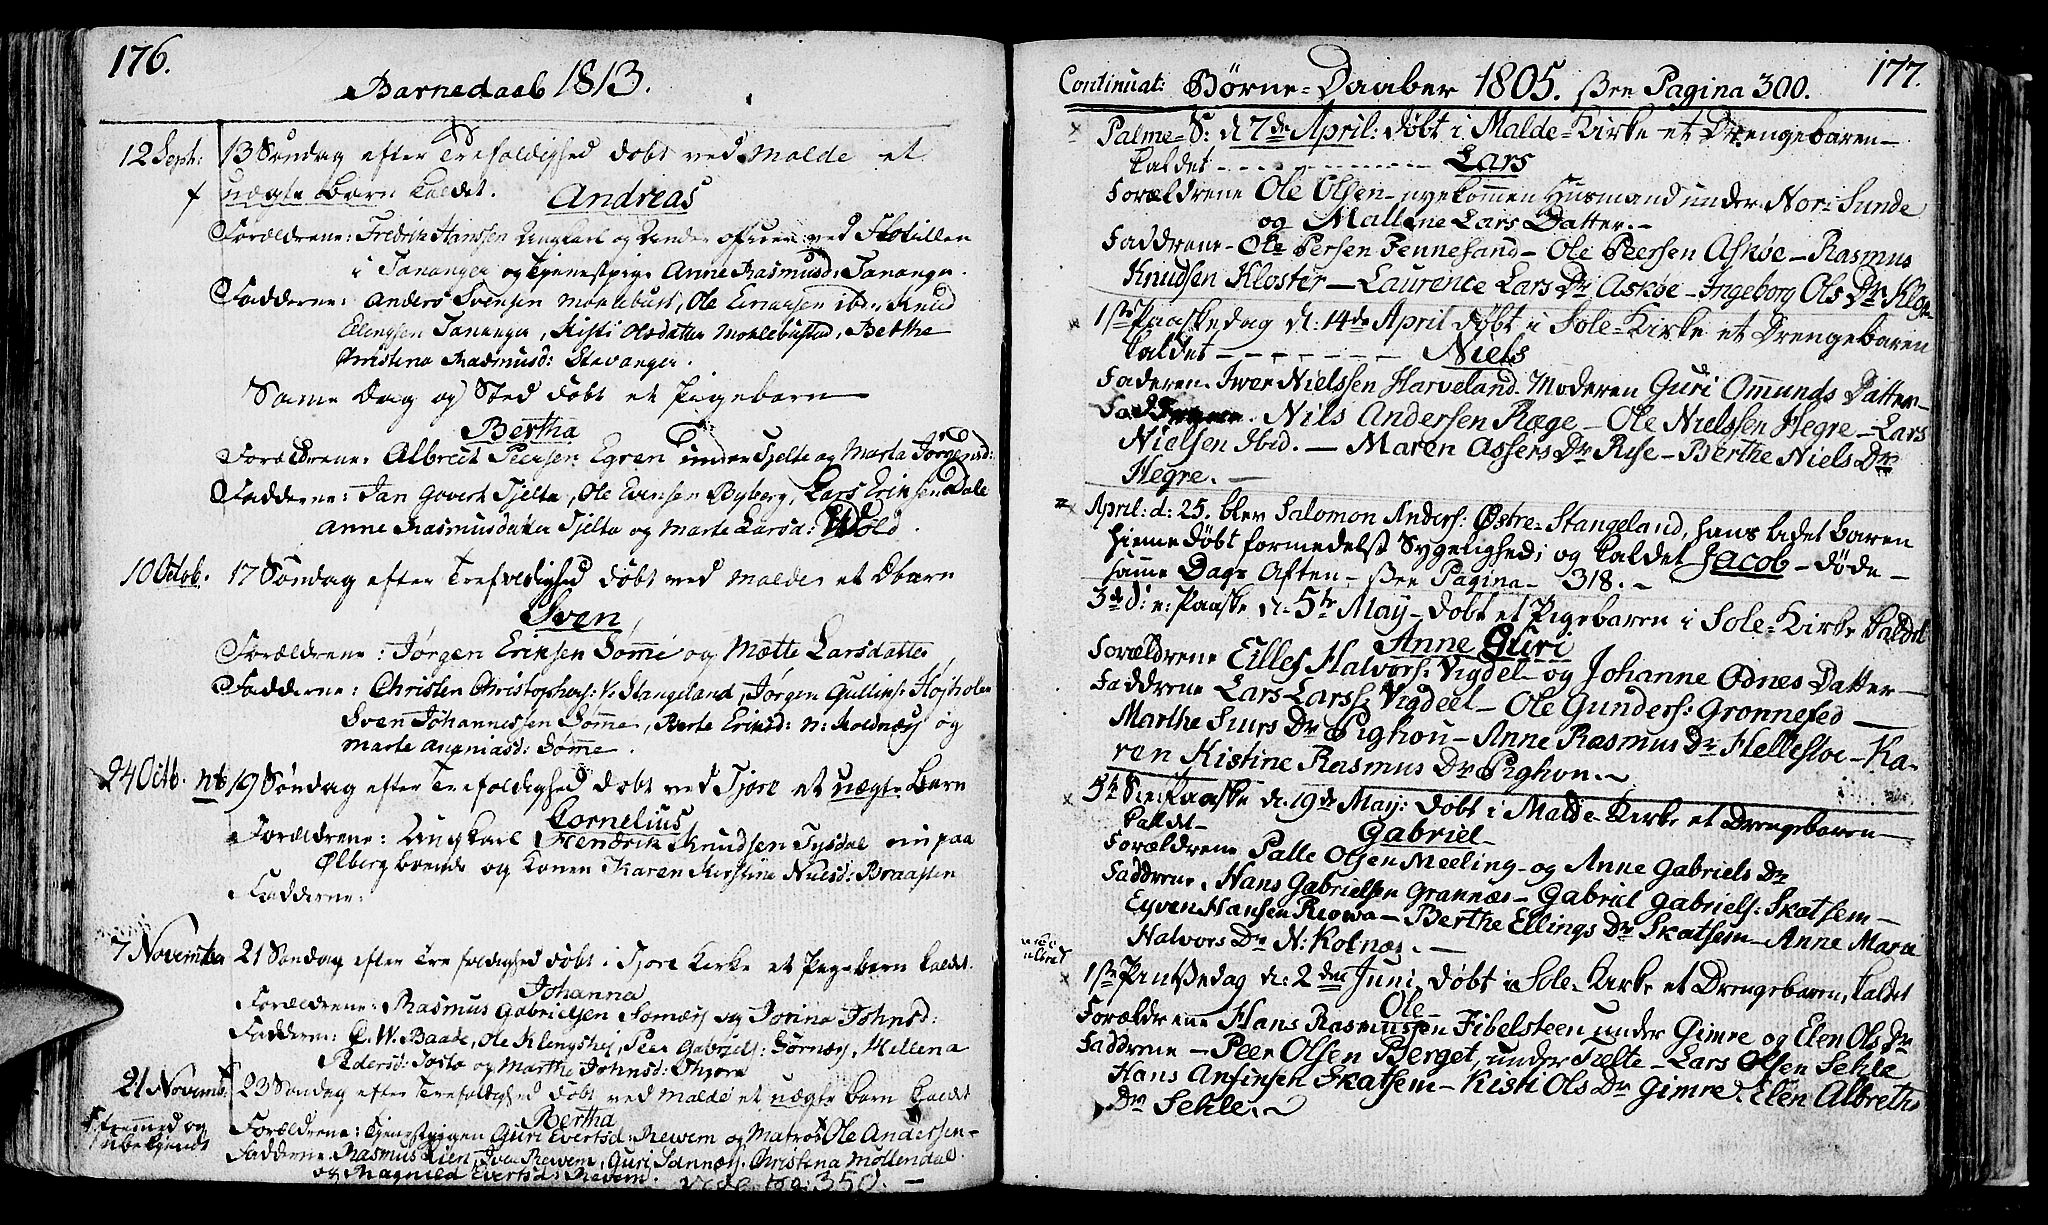 176.
Barnedaab 1813.
12 Sept: 13 Søndag efter Trefoldighed døbt ved Malde et
uægte Barn kaldet. Andreas
Forældrene: Fredrik Hanssen Ungkarl og Under officer ved Flotillen
i Tananger og Tjenestpige Anne Rasmusd: Tananger.
Fadderne: Anders Svensen Moklebust, Ole Ericksen ibd., Knud
Ellingsen Tananger, Kisti Olsdatter Moklebusted, Berthe
Christina Rasmusd: Stavanger.
Same Dag og Sted døbt et Pigebarn
Bertha
Forældrene: Albrect Peersen Egren under Tjelte og Marta Jørgensd:
Fadderne: Jan Govert Tjelta, Ole Evensen Byberg, Lars Eriksen Dale
Anne Rasmusdatter Tjelta og Marte Larsd: Wold.
10 Octob. 17 Søndag efter Trefoldighed døbt ved Malde et Dbarn
Sven
Forældrene: Jørgen Eriksen Sømme og Mætte Larsdatter
Fadderne: Christen Christophers: V. Stangeland, Jørgen Gullichs: Højholen
Sven Johannessen Sømme, Berte Eriksd: N: Kolnæs og
Marte Ananiasd: Sømme.
24 Octb. nb 19 Søndag efter Trefoldighed døbt ved Tjore et uægte Barn
Cornelius
Forældrene: Ungkarl Hendrik Knudsen Tysdal nu paa
Ølberg boende og Konen Karen Kirstine Nielsd: Braasten
Fadderne:
7 November 21 Søndag efter Trefoldighed døbt i Tjora Kirke et Pigebarn kaldet.
Johanna
Forældrene: Rasmus Gabrielsen Sørnæs og Jorina Johnsd:
Fadderne: C. W. Baade, Ole Klengshej, Peer Gabriels: Sørnæs, Hellena
Pedersd: Josta og Marthe Johnsd: Thjora
21 Novemb: 23 Søndag efter Trefoldighed døbt ved Malde et uægte Barn kaldet
Bertha
fremmed og
ubekjendt
Forældrene: Tjenestpigen Guri Evertsd: Rewem og Matros Ole Andersen
Fadderne Rasmus Lien, Iver Rewem, Guri Sannæs, Christina Mollendal
og Magnild Evertsd: Revem. Vide pag: 350.
177.
Continuat: Børne-Daaber 1805. See Pagina 300.
Palme-S: d 7de April: døbt i Malde-Kirke et Drengebaren
kaldet Lars
Forældrene Ole Olsen nyekommen Huusmand under Nor: Sunde
og Mallene Lars Datter.
Faddrene Ole Persen Fennefand - Ole Peersen Askøe - Rasmus
Knudsen Kloster - Laurence Lars Dr Askøe - Ingeborg Ols Dr Kloster
1ste Paaskedag d: 14de April døbt i Sole-Kirke et Drengebaren
kaldet Niels
Faderen Iwer Nielssen Harveland. Moderen Guri Ommunds Datter
Faddrene. Nils Andersen Ræge - Ole Nielssen Hegre - Lars
Nielsen Ibid. - Maren Assers Dr Rise - Berthe Niels Dr
Hegre.
April: d: 25. blev Salomon Anders: Østre-Stangeland, hans ladet Baren
hiemedøbt formedelst Sygelighed; og kaldet Jacob - døde
samme Dags Aften - See Pagina - 318.
3de S: e: Paaske d. 5te May - døbt et Pigebaren i Sole-Kirke kaldet
Anne Guri
Forældrene Eilles Halvors: Vigdel - og Johanne Odnes Datter
Faddrene Lars Larss: Vigdeel - Ole Gunders: Grønnefed
Marthe Siurs Dr Pighou - Anne Rasmus Dr Hellestoe - Ka-
ren Kistine Rasmus Dr Pighon.
5te S: e: Paaske d. 19de May: døbt i Malde-Kirke et Drengebaren
kaldet Gabriel
Forældrene Palle Olsen Meeling - og Anne Gabriels Dr
Faddrene. Hans Gabrielsen Grannæs - Gabriel Gabriels: Skatsem
Eyven Hansen Reowa - Berthe Ellings Dr Skatsem - Anne Mara
Halvors Dr N: Kolnæs.
1ste Pintsedag d: 2den Juni døbt i Sole-Kirke et Drengebaren, kaldet
Ole
Forældrene Hans Rasmussen Fibelsteen under Gimre og Elen Ols Dr
Faddrene - Peer Olsen Berget, under Tielte - Lars Olsen Sehle
Hans Ansinsen Skatsem - Kisti Ols Dr Gimre. Elen Albreths
Dr Sehle.